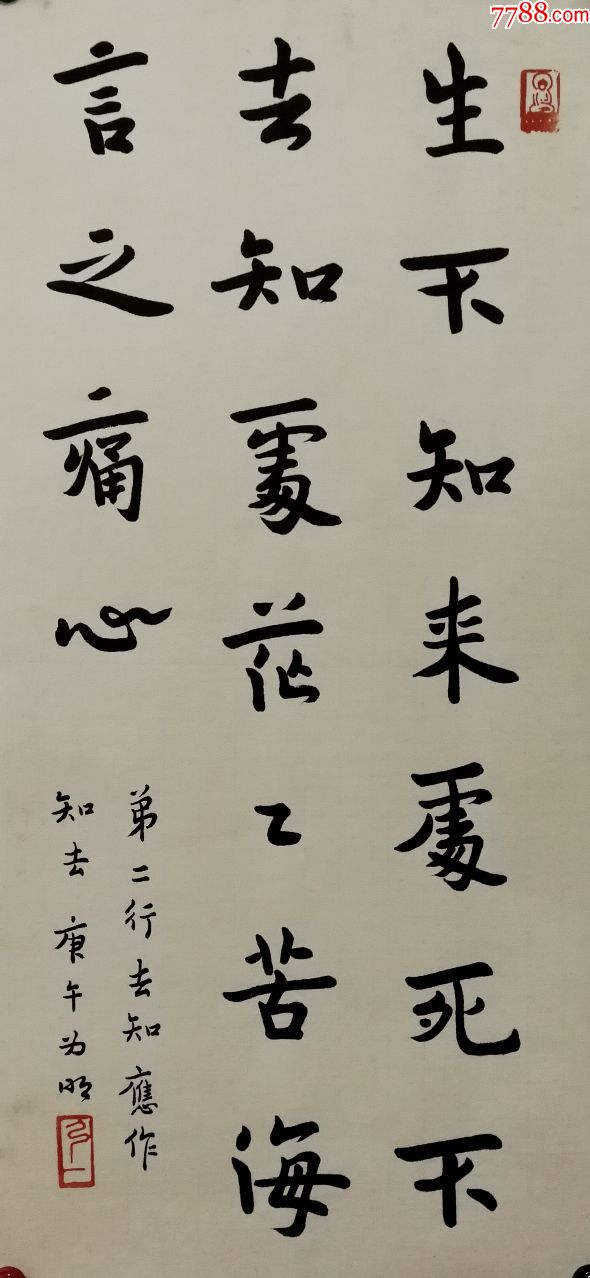 7788.com
生不知来處死不
去知處茫々苦海
言之痛心
第二行去知應作
知去 庚午为明